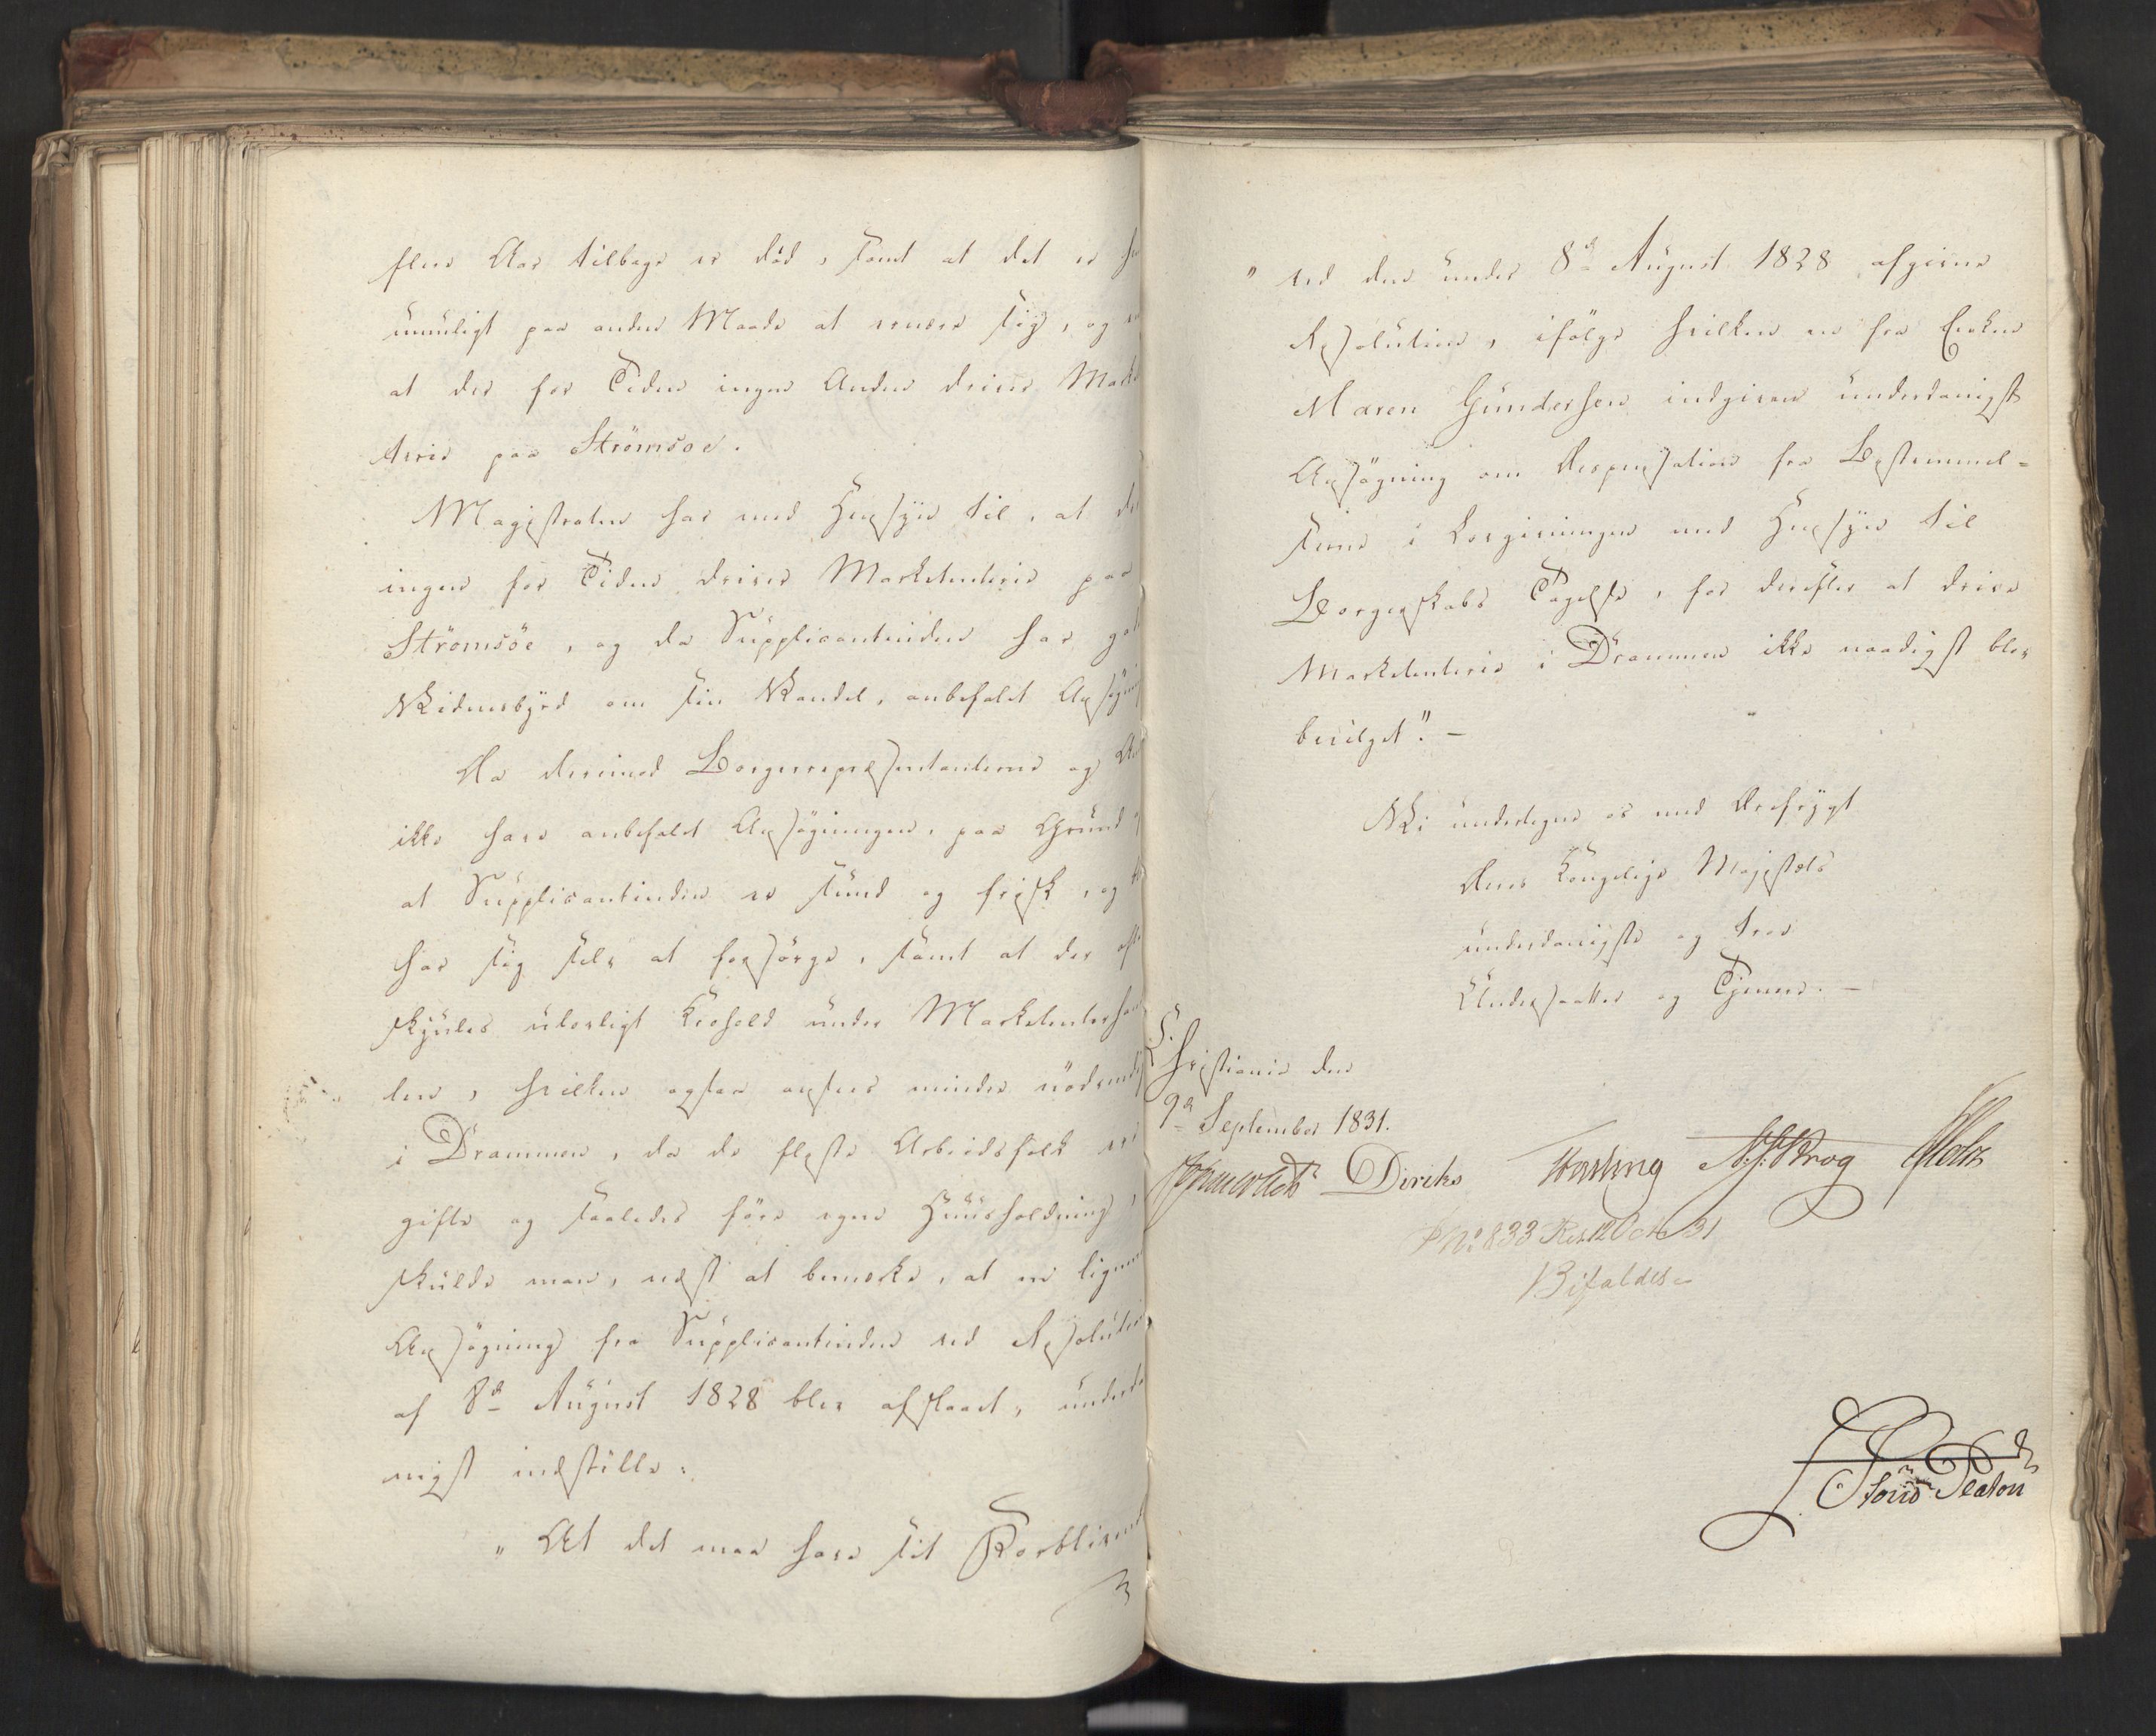 flere Aar tilbage er död, samt at det er
umuligt paa anden Maade at ernære sig, og
at der for Tiden ingen Anden driver Marke
terie paa Strömsöe.
Magistraten har med Hensyn til, at
ingen for Tiden driver Marketenterie paa
Strömsöe, og da Supplicantinden har
Vidnesbyrd om sin Vandel, anbefalet Ansögnin
Da derimod Borgerrepræsentanterne og
ikke have anbefalet Ansögningen, paa Grund
at Supplicantinden er sund og frisk, og
har sig selv at forsörge, samt at der
skjules ulovligt Krohold under Marketenterhan
len, hvilken ogsaa ansees mindre nödvendi
i Drammen, da de fleste Arbeidsfolk
gifte og saaledes före egen Huusholdning,
skulde man, næst at bemærke, at en lignen
Ansögning fra Supplicantinden ved Resolution
af 8de August 1828 blev afslaaet, underda
nigst indstille:
"At det maa have sit Forblivend
"ved den under 8de August 1828 afgivne
Resolution, ifölge hvilken en fra Enken
Maren Gundersen indgiven underdanigst
Ansögning om Dispensation fra Bestemmel-
serne i Lovgivningen med Hensyn til
Borgerskabs Tagelse, for derefter at drive
Marketenterie i Drammen ikke naadigst blev
bevilget". -
Vi undertegne os med Ærefrygt
Deres Kongelige Majestæts
underdanigste og troe
Undersaatter og Tjenere. -
Christiania den
9de September 1831.
Diriks N. J. Krog Holst
No. 833 Res. 12 Octr 31
Bifaldes